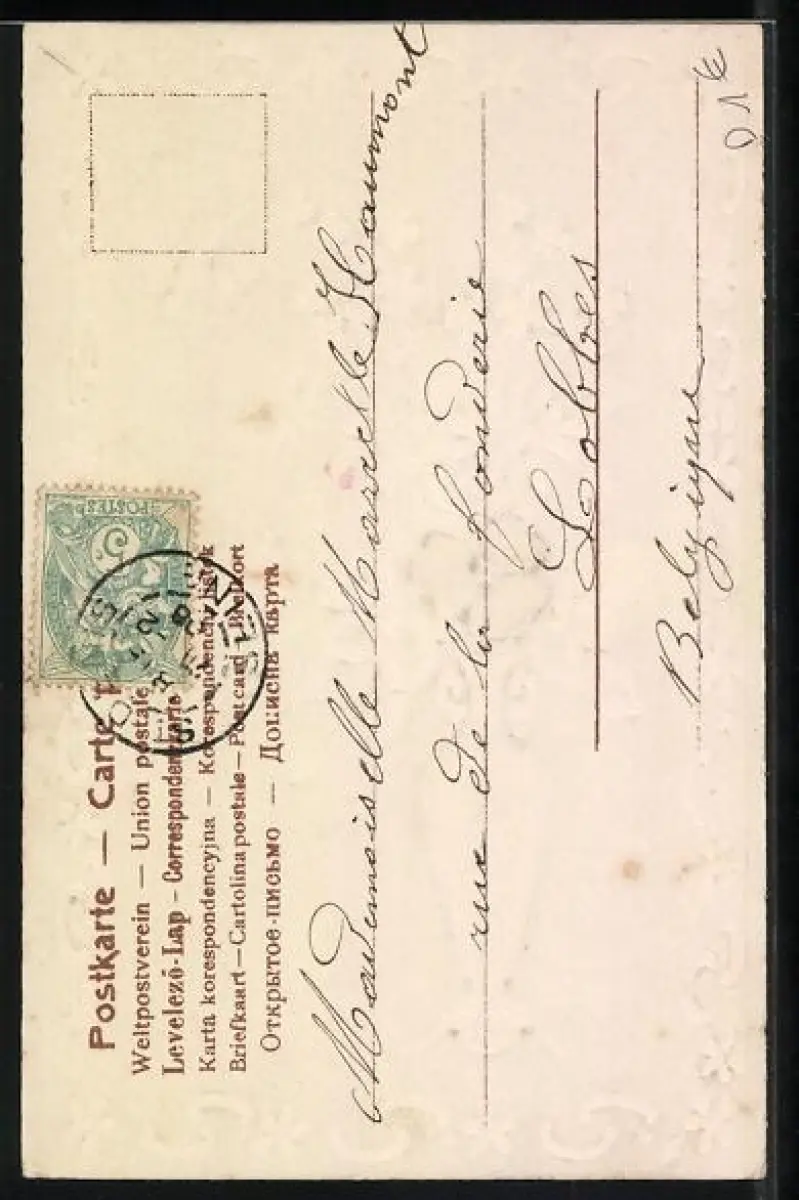 Postkarte — Carte
Weltpostverein — Union postale
Levelező-Lap - Correspondenzkarte
Karta korespondencyjna — Korespondenční lístek
Briefkaart — Cartolina postale — Post card — Brefkort
Открытое письмо — Дописна карта
POSTES
5
Mademoiselle Marcelle Haumont
rue de la fonderie
Lobbes
Belgique